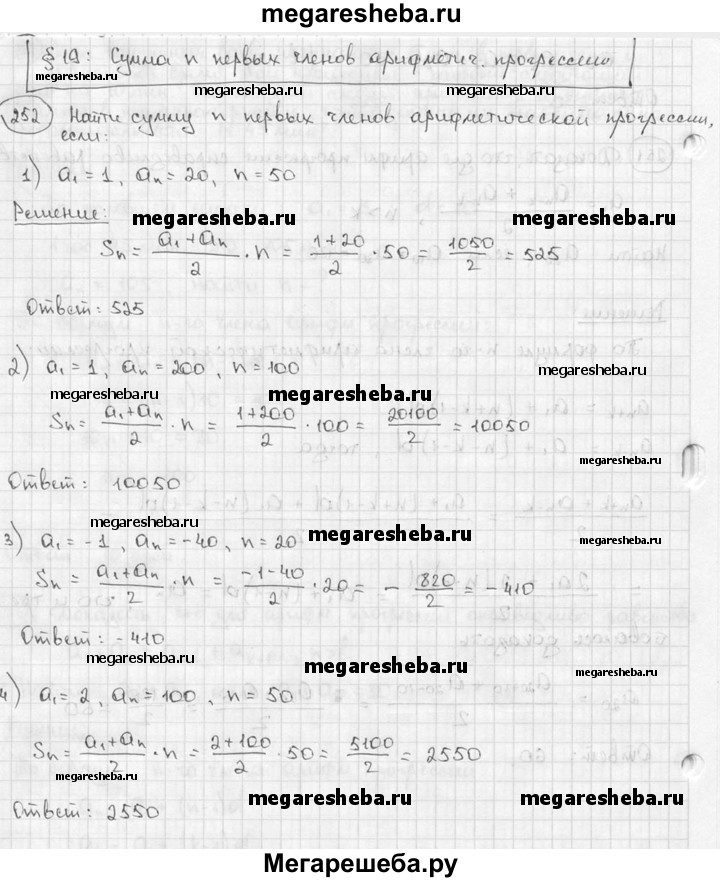 megaresheba.ru
§ 19: Сумма n первых членов арифметич. прогрессии
megaresheba.ru megaresheba.ru megaresheba.ru
252 Найти сумму n первых членов арифметической прогрессии,
если:
1) a₁ = 1, aₙ = 20, n = 50
Решение:
megaresheba.ru megaresheba.ru
Sₙ = (a₁ + aₙ)/2 · n = (1+20)/2 · 50 = 1050/2 = 525
Ответ: 525
2) a₁ = 1, aₙ = 200, n = 100
megaresheba.ru megaresheba.ru megaresheba.ru
Sₙ = (a₁ + aₙ)/2 · n = (1+200)/2 · 100 = 20100/2 = 10050
megaresheba.ru
Ответ: 10050
megaresheba.ru megaresheba.ru
3) a₁ = -1, aₙ = -40, n = 20
Sₙ = (a₁ + aₙ)/2 · n = (-1-40)/2 · 20 = - 820/2 = -410
megaresheba.ru
Ответ: -410
megaresheba.ru megaresheba.ru megaresheba.ru
4) a₁ = 2, aₙ = 100, n = 50
Sₙ = (a₁ + aₙ)/2 · n = (2+100)/2 · 50 = 5100/2 = 2550
megaresheba.ru
megaresheba.ru megaresheba.ru
Ответ: 2550
Мегарешеба.ру